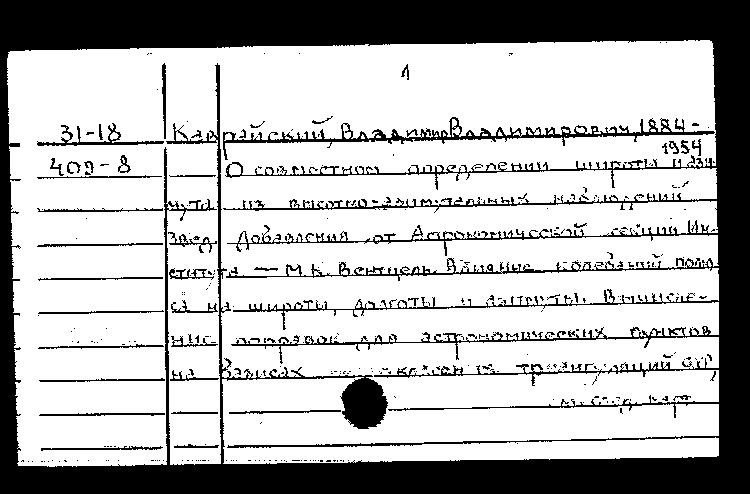 1
31-18 Каврайский, Владимир Владимирович, 1884-
1954
409-8 О совместном определении широты и ази-
мута из высотно-азимутальных наблюдений
звезд. Добавления от Астрономической секции Ин-
ститута — М.К. Вентцель. Влияние колебаний полю-
са на широты, долготы и азимуты. Вычисле-
ние поправок для астрономических пунктов
на базисах триангуляций
см. след. карт.